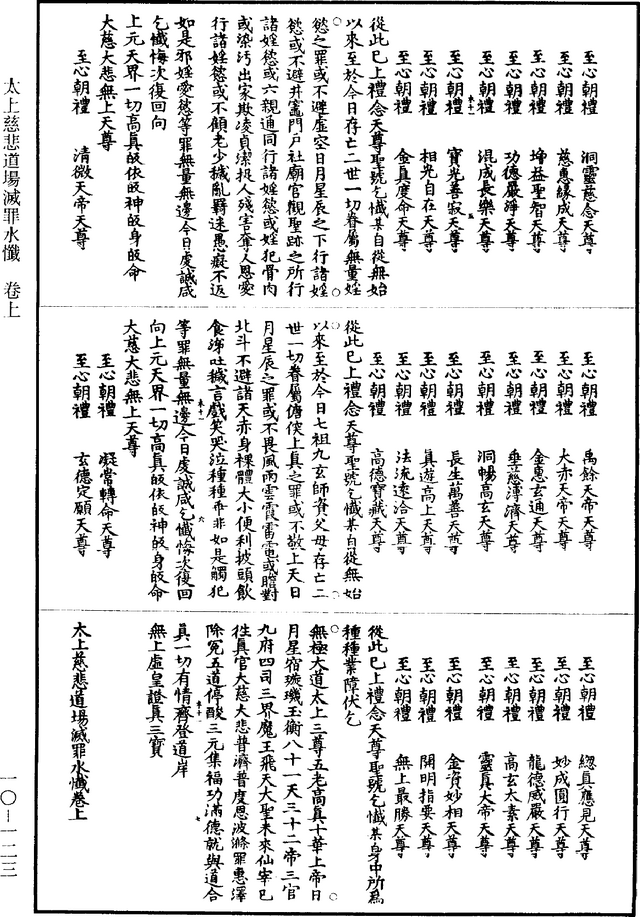 至心朝禮　洞靈慈念天尊
至心朝禮　慈惠緣成天尊
至心朝禮　增益聖智天尊
至心朝禮　功德嚴淨天尊
至心朝禮　混成長樂天尊
至心朝禮　寶光善寂天尊
至心朝禮　相光自在天尊
至心朝禮　金真度命天尊
從此已上禮念天尊聖號乞懺某自從無始
以來至於今日存亡二世一切眷屬無量婬
慾之罪或不避虛空日月星辰之下行諸婬
慾或不避井竈門戶社廟官觀聖跡之所行
諸婬慾或六親通同行諸婬慾或婬犯骨肉
或染污出家欺凌貞潔捉人殘害奪人恩愛
行諸婬慾或不顧老少穢亂羇迷愚癡不返
如是邪婬愛慾等罪無量無邊今日虔誠咸
乞懺悔次復回向
上元天界一切高真皈依皈神皈身皈命
大慈大悲無上天尊
至心朝禮　清微天帝天尊
至心朝禮　禹餘天帝天尊
至心朝禮　大赤天帝天尊
至心朝禮　金惠玄通天尊
至心朝禮　垂慈溥濟天尊
至心朝禮　洞暢高玄天尊
至心朝禮　長生萬善天尊
至心朝禮　真遊高上天尊
至心朝禮　法流遠洽天尊
至心朝禮　高德寶藏天尊
從此已上禮念天尊聖號乞懺某自從無始
以來至於今日七祖九玄師資父母存亡二
世一切眷屬傭俟上真之罪或不敬上天日
月星辰之罪或不畏風雨雲霞雷電或瞻對
北斗不避諸天赤身裸體大小便利披頭飲
食涕吐穢言戲笑哭泣種種乖非如是觸犯
等罪無量無邊今日虔誠咸乞懺悔次復回
向上元天界一切高真皈依皈神皈身皈命
大慈大悲無上天尊
至心朝禮　凝常轉命天尊
至心朝禮　玄德定願天尊
至心朝禮　總真應見天尊
至心朝禮　妙成圓行天尊
至心朝禮　龍德威嚴天尊
至心朝禮　高玄太素天尊
至心朝禮　靈真大帝天尊
至心朝禮　金資妙相天尊
至心朝禮　開明指要天尊
至心朝禮　無上最勝天尊
從此已上禮念天尊聖號乞懺某身中所為
種種業障伏乞
無極大道太上三尊五老高真十華上帝日
月星宿璇璣玉衡八十一天三十二帝三官
九府四司三界魔王飛天大聖未來仙宰已
徃真官大慈大悲普濟普度恩波滌罪惠澤
除冤五道停酸三元集福功滿德就與道合
真一切有情齊登道岸
無上虛皇證真三寶
太上慈悲道場滅罪水懺卷上
太上慈悲道場滅罪水懺　卷上
一〇—一二三